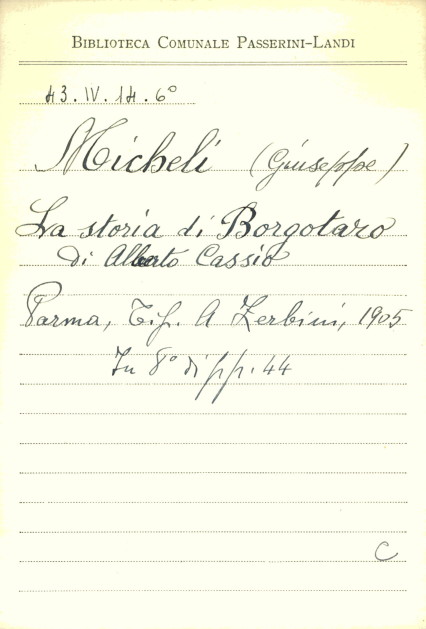 BIBLIOTECA COMUNALE PASSERINI-LANDI
43.IV.14.6°
Micheli (Giuseppe)
La storia di Borgotaro
di Alberto Cassio
Parma, Tip. A Zerbini, 1905
In 8° di pp. 44
C